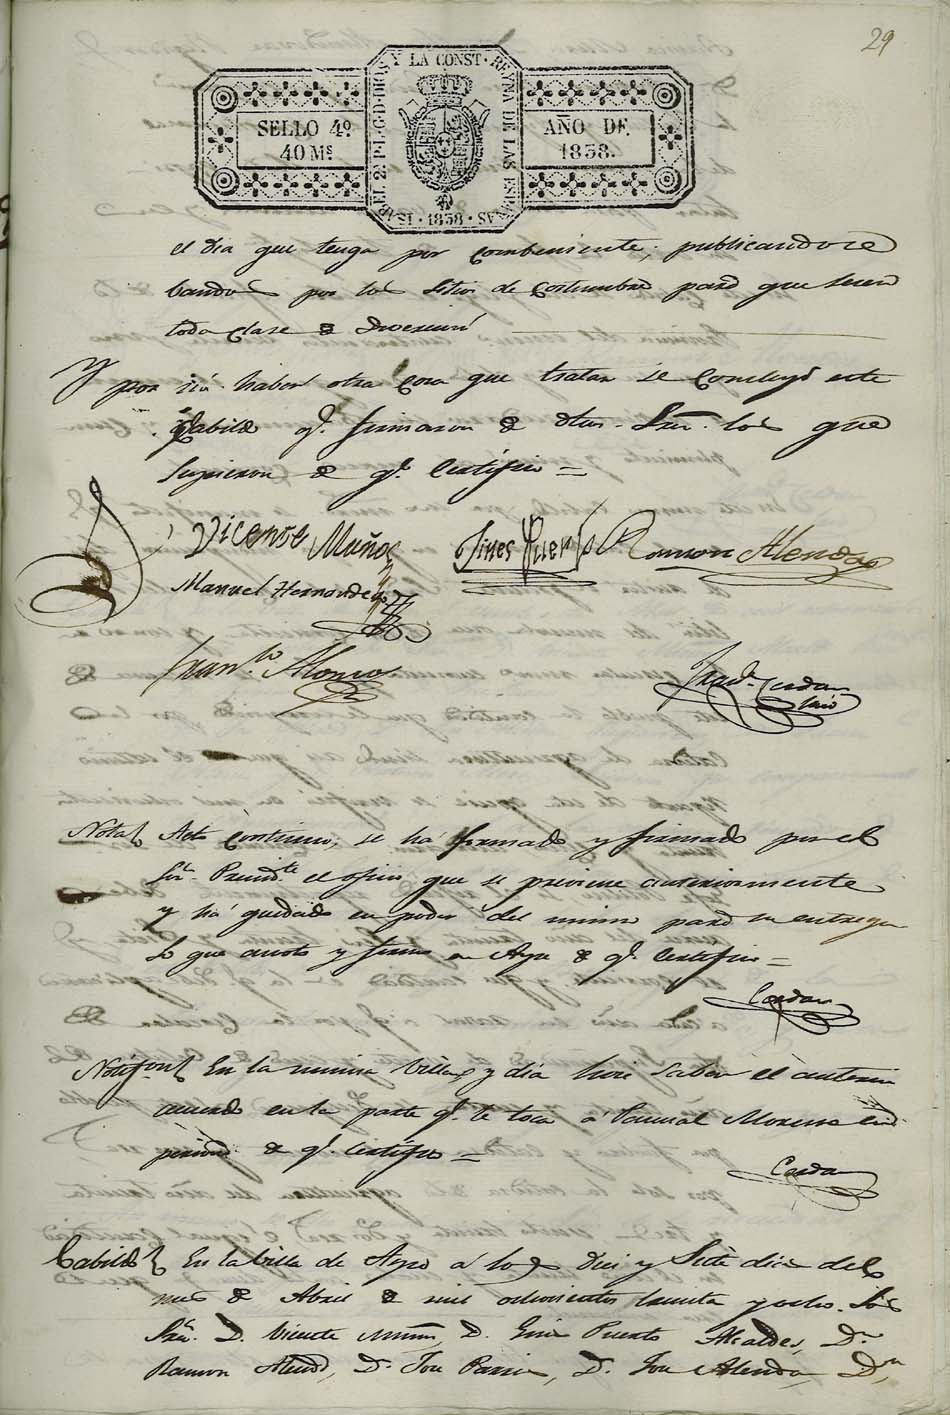 29
ISABEL 2ª P.L.G.D.DIOS Y LA CONST. REYNA DE LAS ESPAÑAS · 1838 ·
SELLO 4º
40 Ms
AÑO DE
1838.
el dia que tenga por combeniente; publicandose
bandos por los sitios de costumbre para que
toda clase de
Y por no haber otra cosa que tratar se concluyó este
Cabildo q.e firmaron de dhos. Sres. los que
supieron de q.e Certifico =
Vicente Muñoz
Gines Puerto
Ramon Alenda
Manuel Hernandez
Fran.co Alonso
Cerdan
Srio
Nota
Acto continuo, se ha formado y firmado por el
Sr. Presid.te el oficio que se previene anteriormente
y ha quedado en poder del mismo para su entrega
Lo que anoto y firmo en Aspe de q.e Certifico =
Cerdan
Notif.on
En la misma Villa y dia hice saber el anterior
acuerdo en la parte q.e le toca a Pascual Moreno en
persona de q.e Certifico =
Cerdan
Cabildo
En la Villa de Aspe á los Diez y Siete dias del
mes de Abril de mil ochocientos treinta y ocho. Los
Sres. D. Vicente Muñoz, D. Gines Puerto Alcaldes, Dn.
Ramon Alenda, D. Jose D. Jose Alenda, Dn.